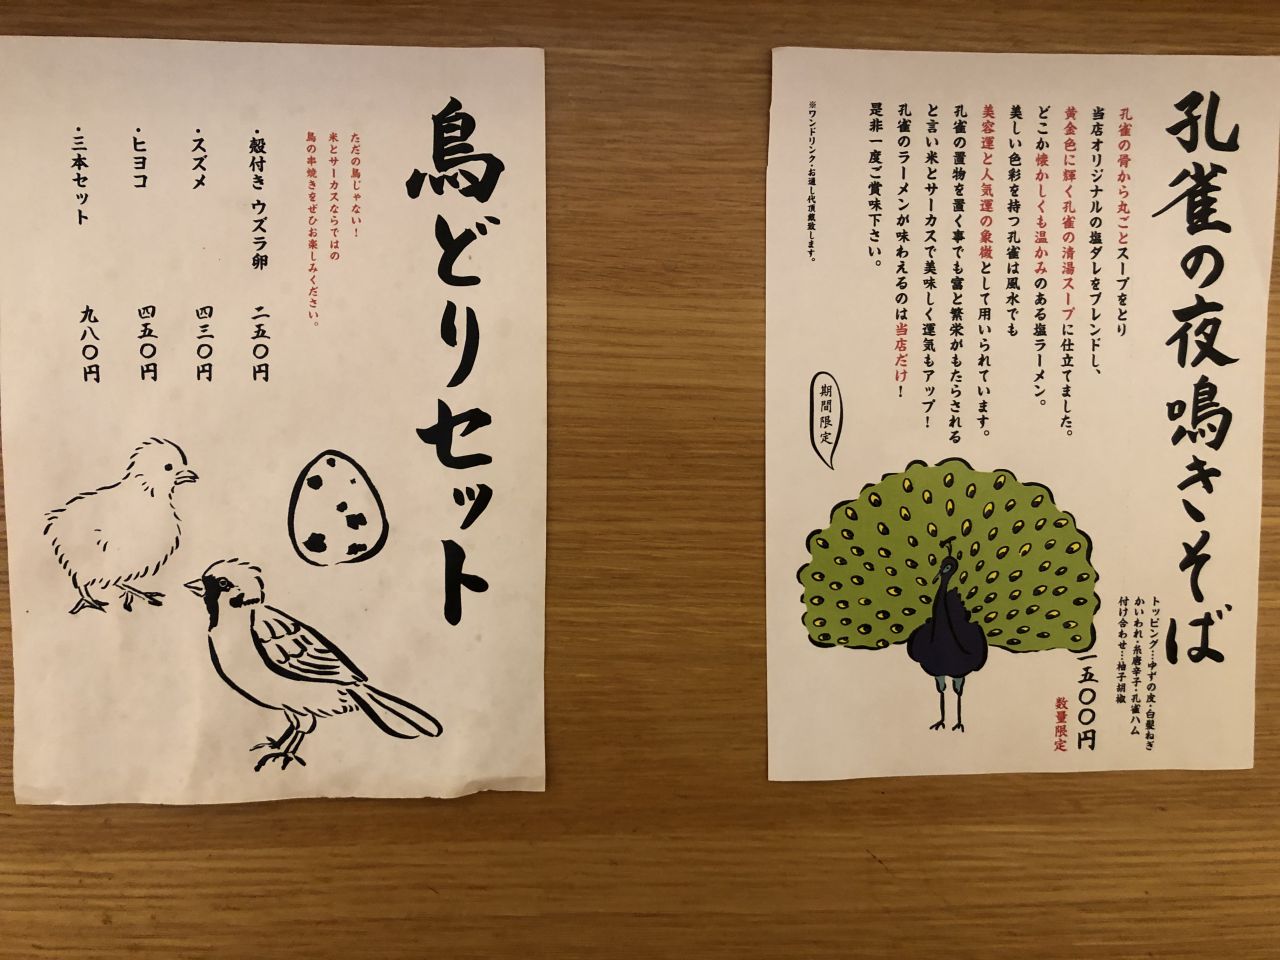 鳥どりセット
ただの鳥じゃない！
米とサーカスならではの
鳥の串焼きをぜひお楽しみください。
・殻付きウズラ卵 二五〇円
・スズメ 四三〇円
・ヒヨコ 四五〇円
・三本セット 九八〇円
孔雀の夜鳴きそば
トッピング…ゆずの皮・白髪ねぎ
かいわれ・糸唐辛子・孔雀ハム
付け合わせ…柚子胡椒
一五〇〇円
数量限定
孔雀の骨から丸ごとスープをとり
当店オリジナルの塩ダレをブレンドし、
黄金色に輝く孔雀の清湯スープに仕立てました。
どこか懐かしくも温かみのある塩ラーメン。
美しい色彩を持つ孔雀は風水でも
美容運と人気運の象徴として用いられています。
孔雀の置物を置く事でも富と繁栄がもたらされる
と言い米とサーカスで美味しく運気もアップ！
孔雀のラーメンが味わえるのは当店だけ！
是非一度ご賞味下さい。
※ワンドリンク・お通し代頂戴致します。
期間限定